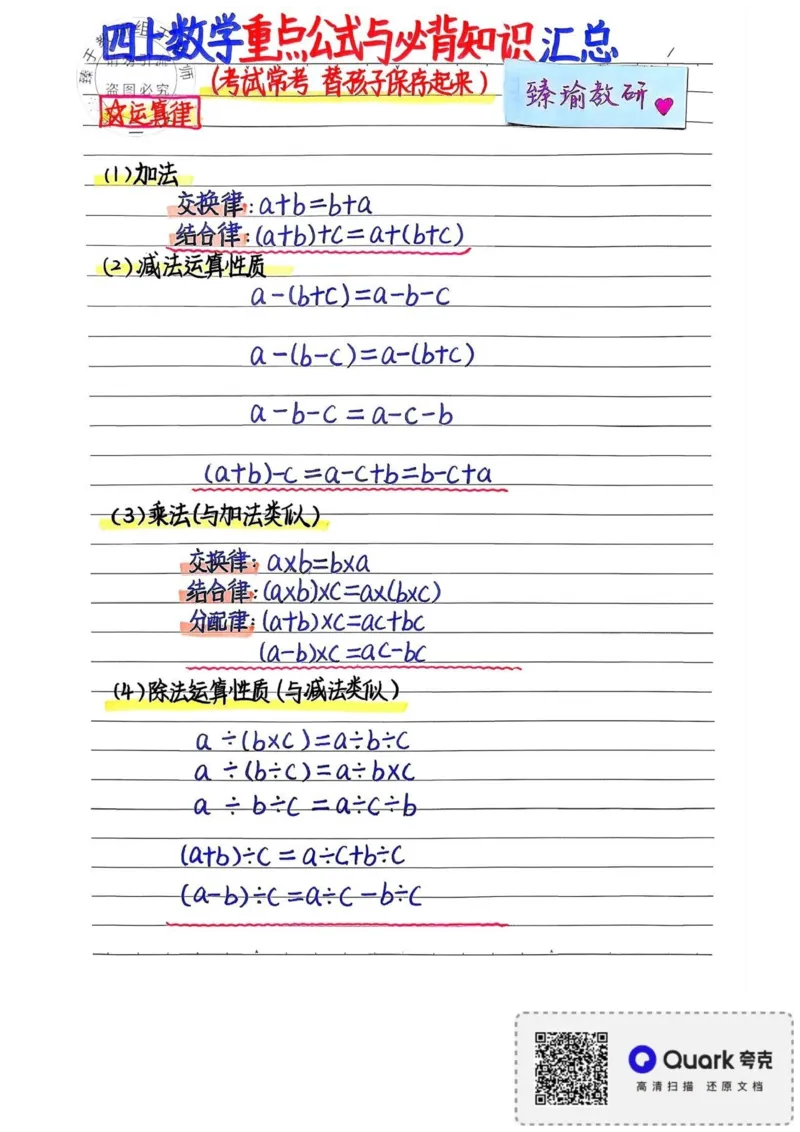 四上数学重点公式与必背知识汇总
(考试常考 替孩子保存起来)
臻瑜教研
盗图必究
☆运算律
(1)加法
交换律:a+b=b+a
结合律:(a+b)+c=a+(b+c)
(2)减法运算性质
a-(b+c)=a-b-c
a-(b-c)=a-(b+c)
a-b-c=a-c-b
(a+b)-c=a-c+b=b-c+a
(3)乘法(与加法类似)
交换律:a×b=b×a
结合律:(a×b)×c=a×(b×c)
分配律:(a+b)×c=ac+bc
(a-b)×c=ac-bc
(4)除法运算性质(与减法类似)
a÷(b×c)=a÷b÷c
a÷(b÷c)=a÷b×c
a÷b÷c=a÷c÷b
(a+b)÷c=a÷c+b÷c
(a-b)÷c=a÷c-b÷c
Quark夸克
高清扫描 还原文档